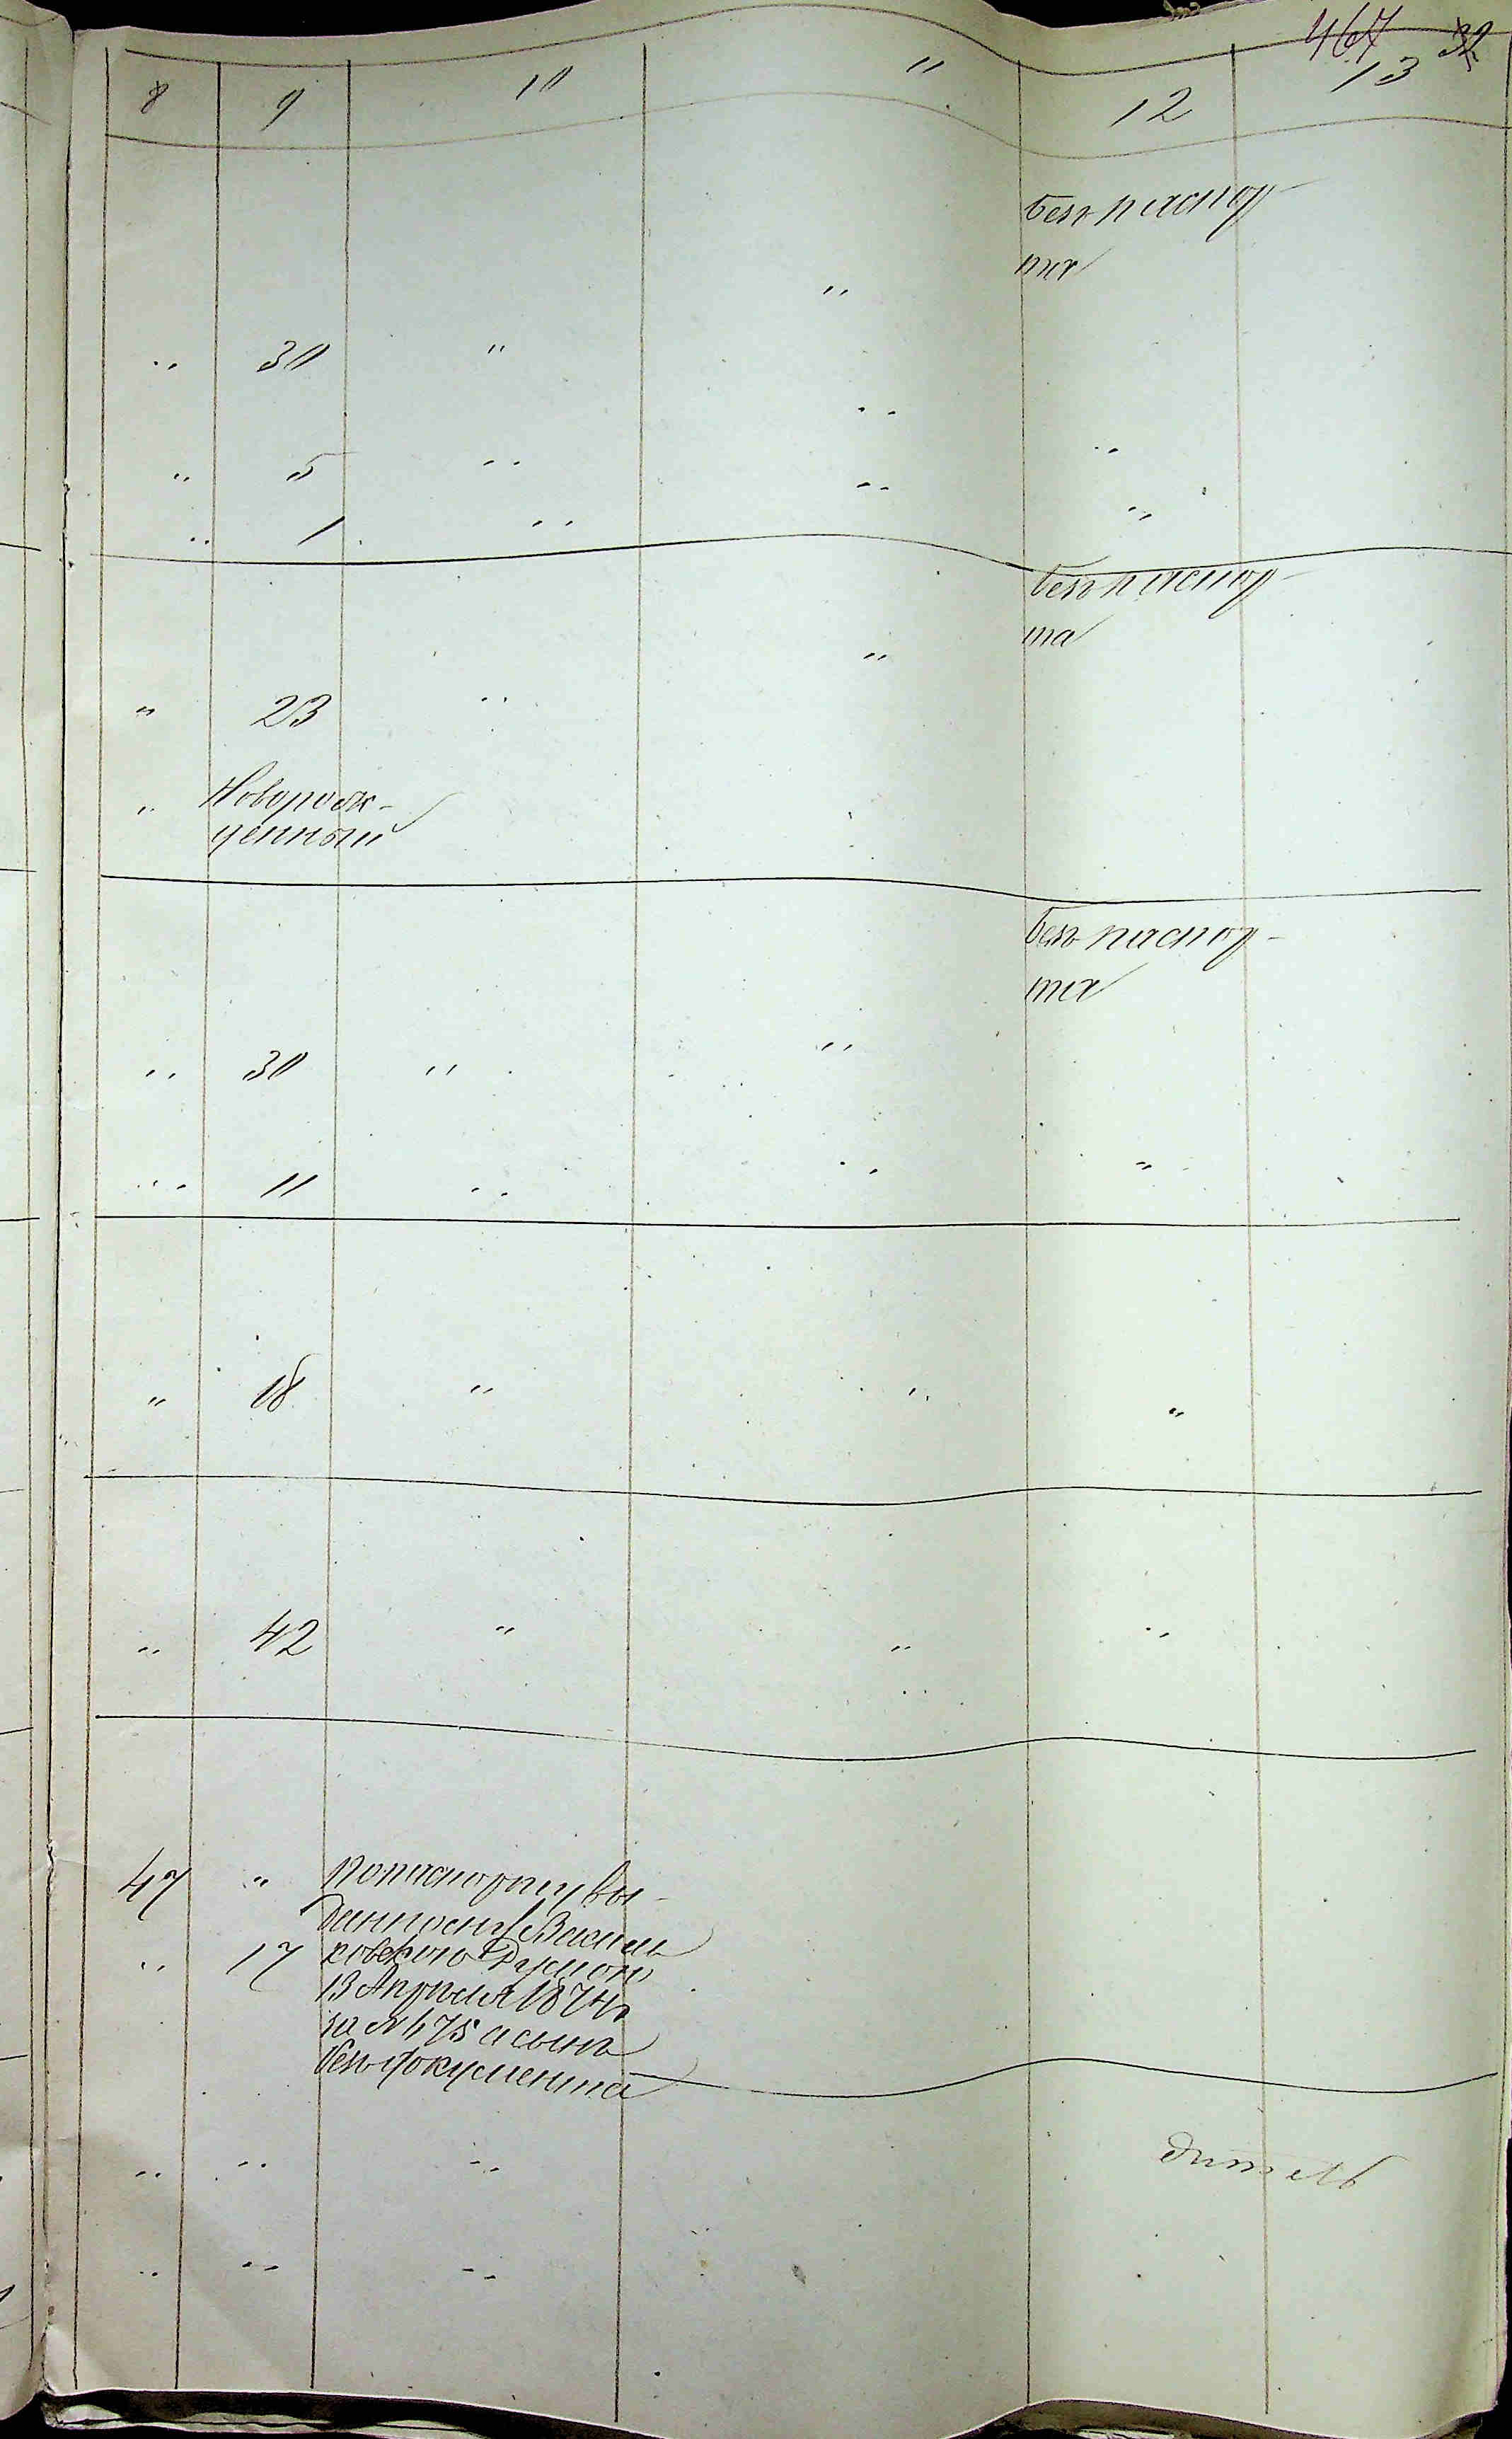 467 32
8 9 10 11 12 13
безъ паспор-
та
"
" 30 "
"
" 5 " "
"
" 1 " "
безъ паспор-
та
"
" 23 "
" Новорож-
денный
безъ паспор-
та
"
" 30 "
" 11 " " "
" 18 " " "
" 42 " " "
47 " по паспорту вы-
данному Василь
" 17 ковскою Думою
13 Апреля 1874 г
за № 475 а сынъ
безъ документа
" " "
дитель
" " "